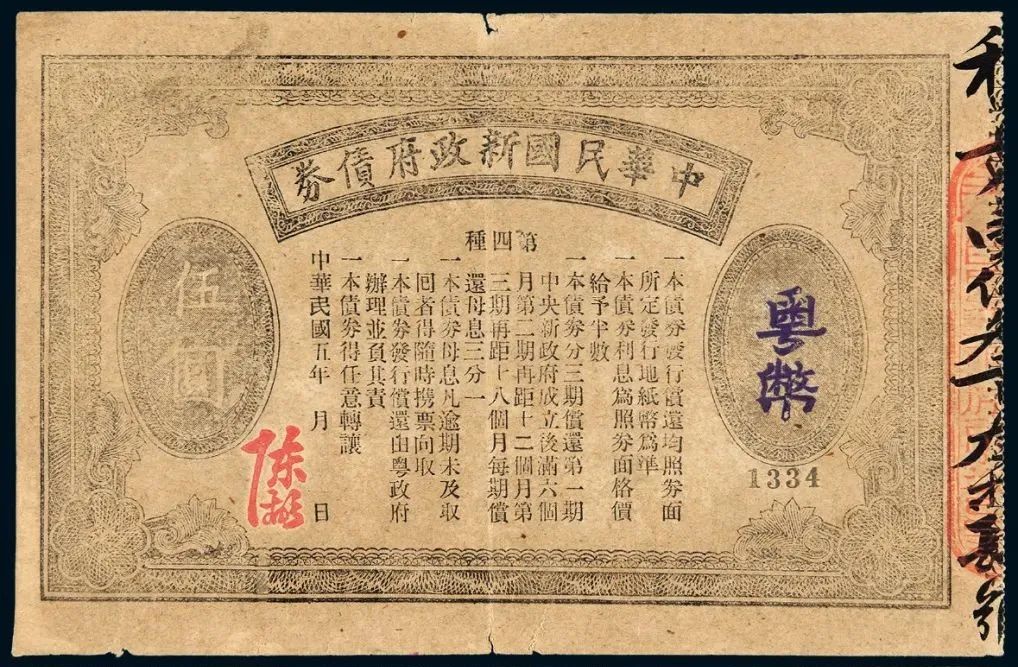 中華民國新政府債券
第四種
一本債券發行償還均照券面
所定發行地紙幣爲準
一本債券利息爲照券面格價
給予半數
一本債券分三期償還第一期
中央新政府成立後滿六個
月第二期再距十二個月第
三期再距十八個月每期償
還母息三分一
一本債券母息凡逾期未及取
回者得隨時携票向取
一本債券發行償還由粤政府
辦理並負其責
一本債券得任意轉讓
中華民國五年 月 日
粤幣
1334
伍圓